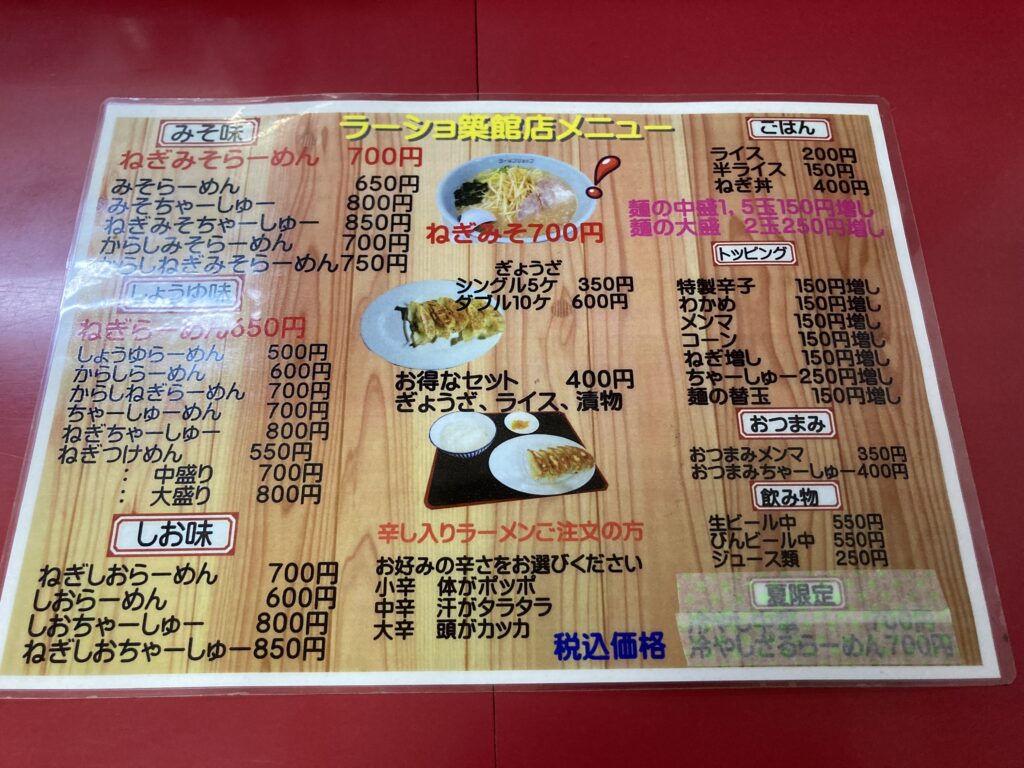 ラーショ築館店メニュー
みそ味
ねぎみそらーめん 700円
みそらーめん 650円
みそちゃーしゅー 800円
ねぎみそちゃーしゅー 850円
からしみそらーめん 700円
からしねぎみそらーめん 750円
しょうゆ味
ねぎらーめん 650円
しょうゆらーめん 500円
からしらーめん 600円
からしねぎらーめん 700円
ちゃーしゅーめん 700円
ねぎちゃーしゅー 800円
ねぎつけめん 550円
: 中盛り 700円
: 大盛り 800円
しお味
ねぎしおらーめん 700円
しおらーめん 600円
しおちゃーしゅー 800円
ねぎしおちゃーしゅー 850円
ねぎみそ700円
ぎょうざ
シングル5ケ 350円
ダブル10ケ 600円
お得なセット 400円
ぎょうざ、ライス、漬物
辛し入りラーメンご注文の方
お好みの辛さをお選びください
小辛 体がポッポ
中辛 汗がタラタラ
大辛 頭がカッカ
税込価格
ごはん
ライス 200円
半ライス 150円
ねぎ丼 400円
麺の中盛1,5玉150円増し
麺の大盛 2玉250円増し
トッピング
特製辛子 150円増し
わかめ 150円増し
メンマ 150円増し
コーン 150円増し
ねぎ増し 150円増し
ちゃーしゅー250円増し
麺の替玉 150円増し
おつまみ
おつまみメンマ 350円
おつまみちゃーしゅー400円
飲み物
生ビール中 550円
びんビール中 550円
ジュース類 250円
夏限定
冷やしざるらーめん700円